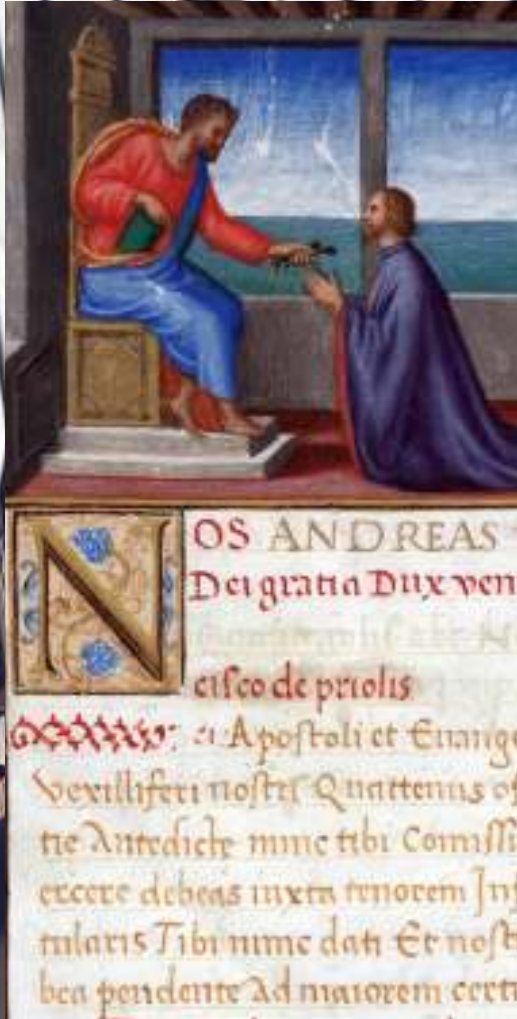 NOS ANDREAS
Dei gratia Dux ven
cisco de priolis
Apostoli et Euange
Vexilliferi nostri Quattenus of
tie Antedicte nunc tibi Comissi
ercere debeas iuxta tenorem Inf
tularis Tibi nunc dati Et nost
bea pendente Ad maiorem certi